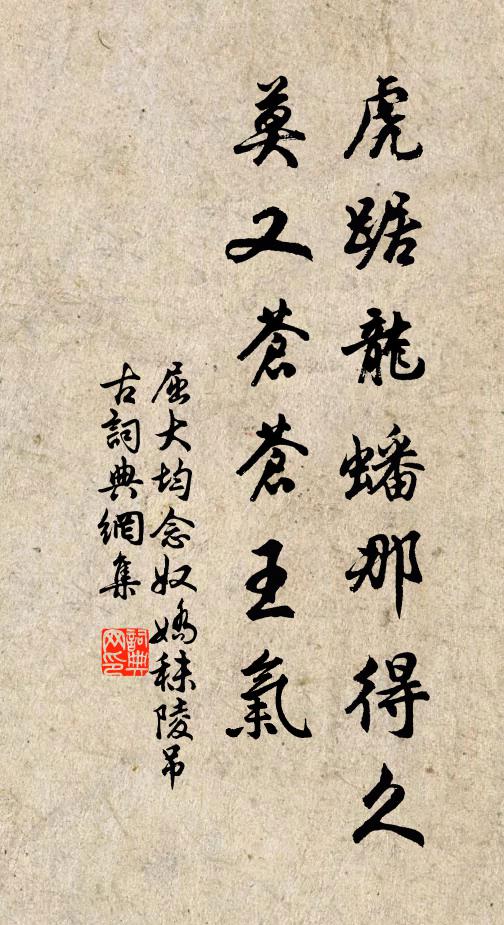 虎踞龍蟠那得久
莫又蒼蒼王氣
屈大均念奴嬌秣陵吊
古詞典網集
詞典
网印